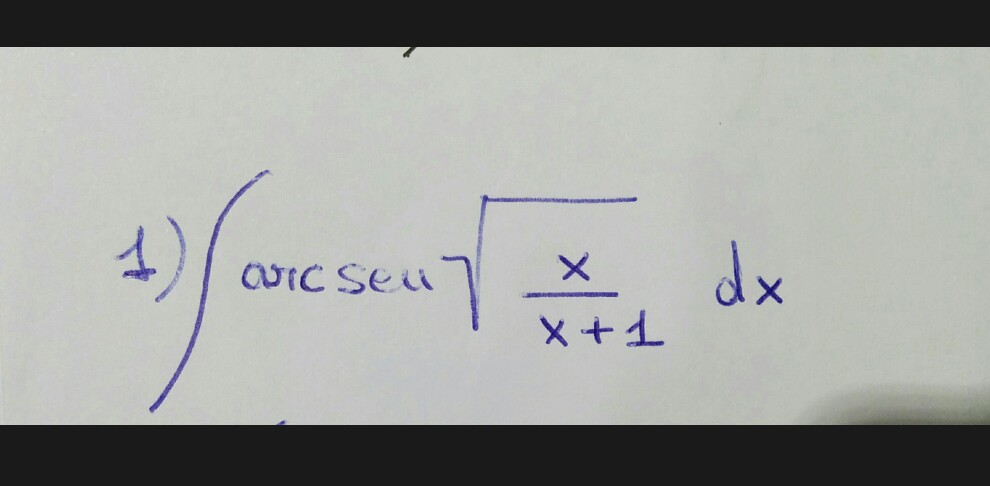 1) ∫ arcsen √(x/(x+1)) dx